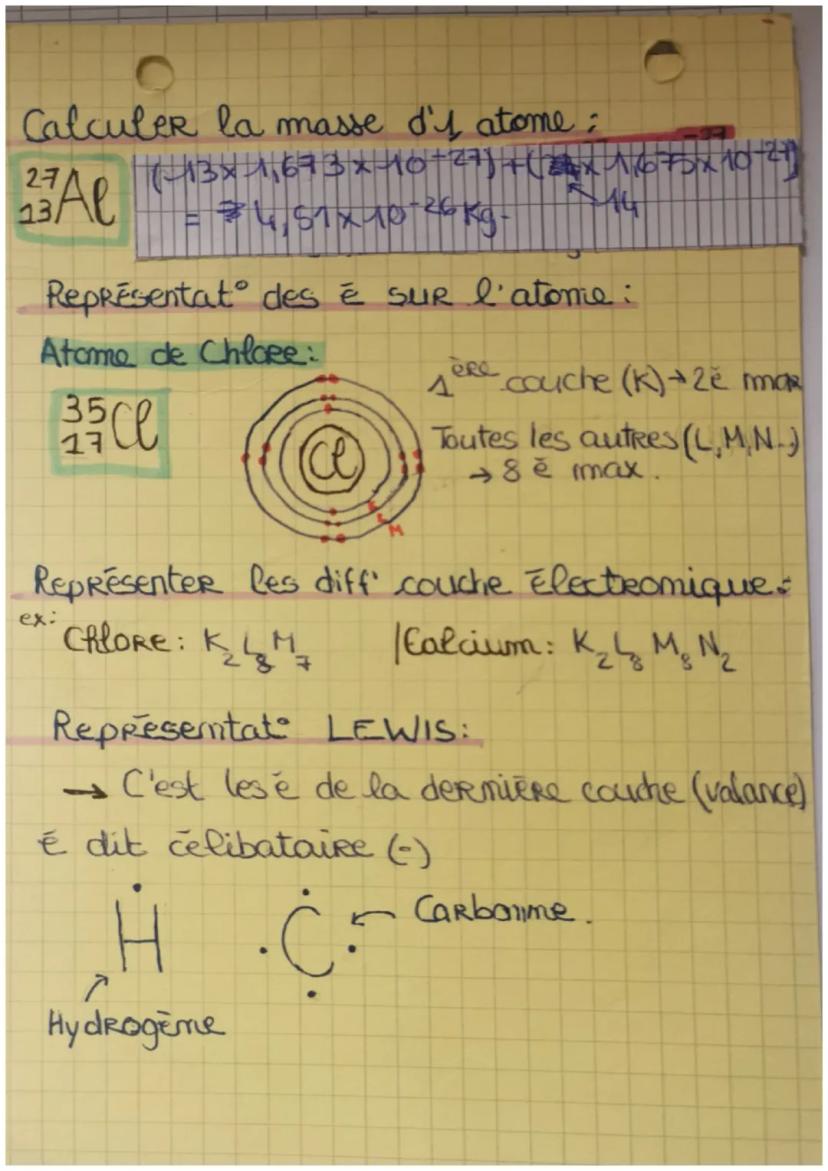 Calculer la masse d'1 atome :
27
13 Al
(13 x 1,673 x 10-27) + ( x 1,675 x 10-27)
14
= 4,51 x 10-26 Kg.
Représentat° des é sur l'atome :
Atome de Chlore :
35
17 Cl
Cl
K
L
M
1ère couche (K) → 2é max
Toutes les autres (L, M, N..)
→ 8 é max.
Représenter les diff' couche électronique :
ex:
Chlore : K2 L8 M7 | Calcium : K2 L8 M8 N2
Représentat° LEWIS :
→ C'est les é de la dernière couche (valance)
é dit célibataire (-)
H
C
← Carbonne.
Hydrogène